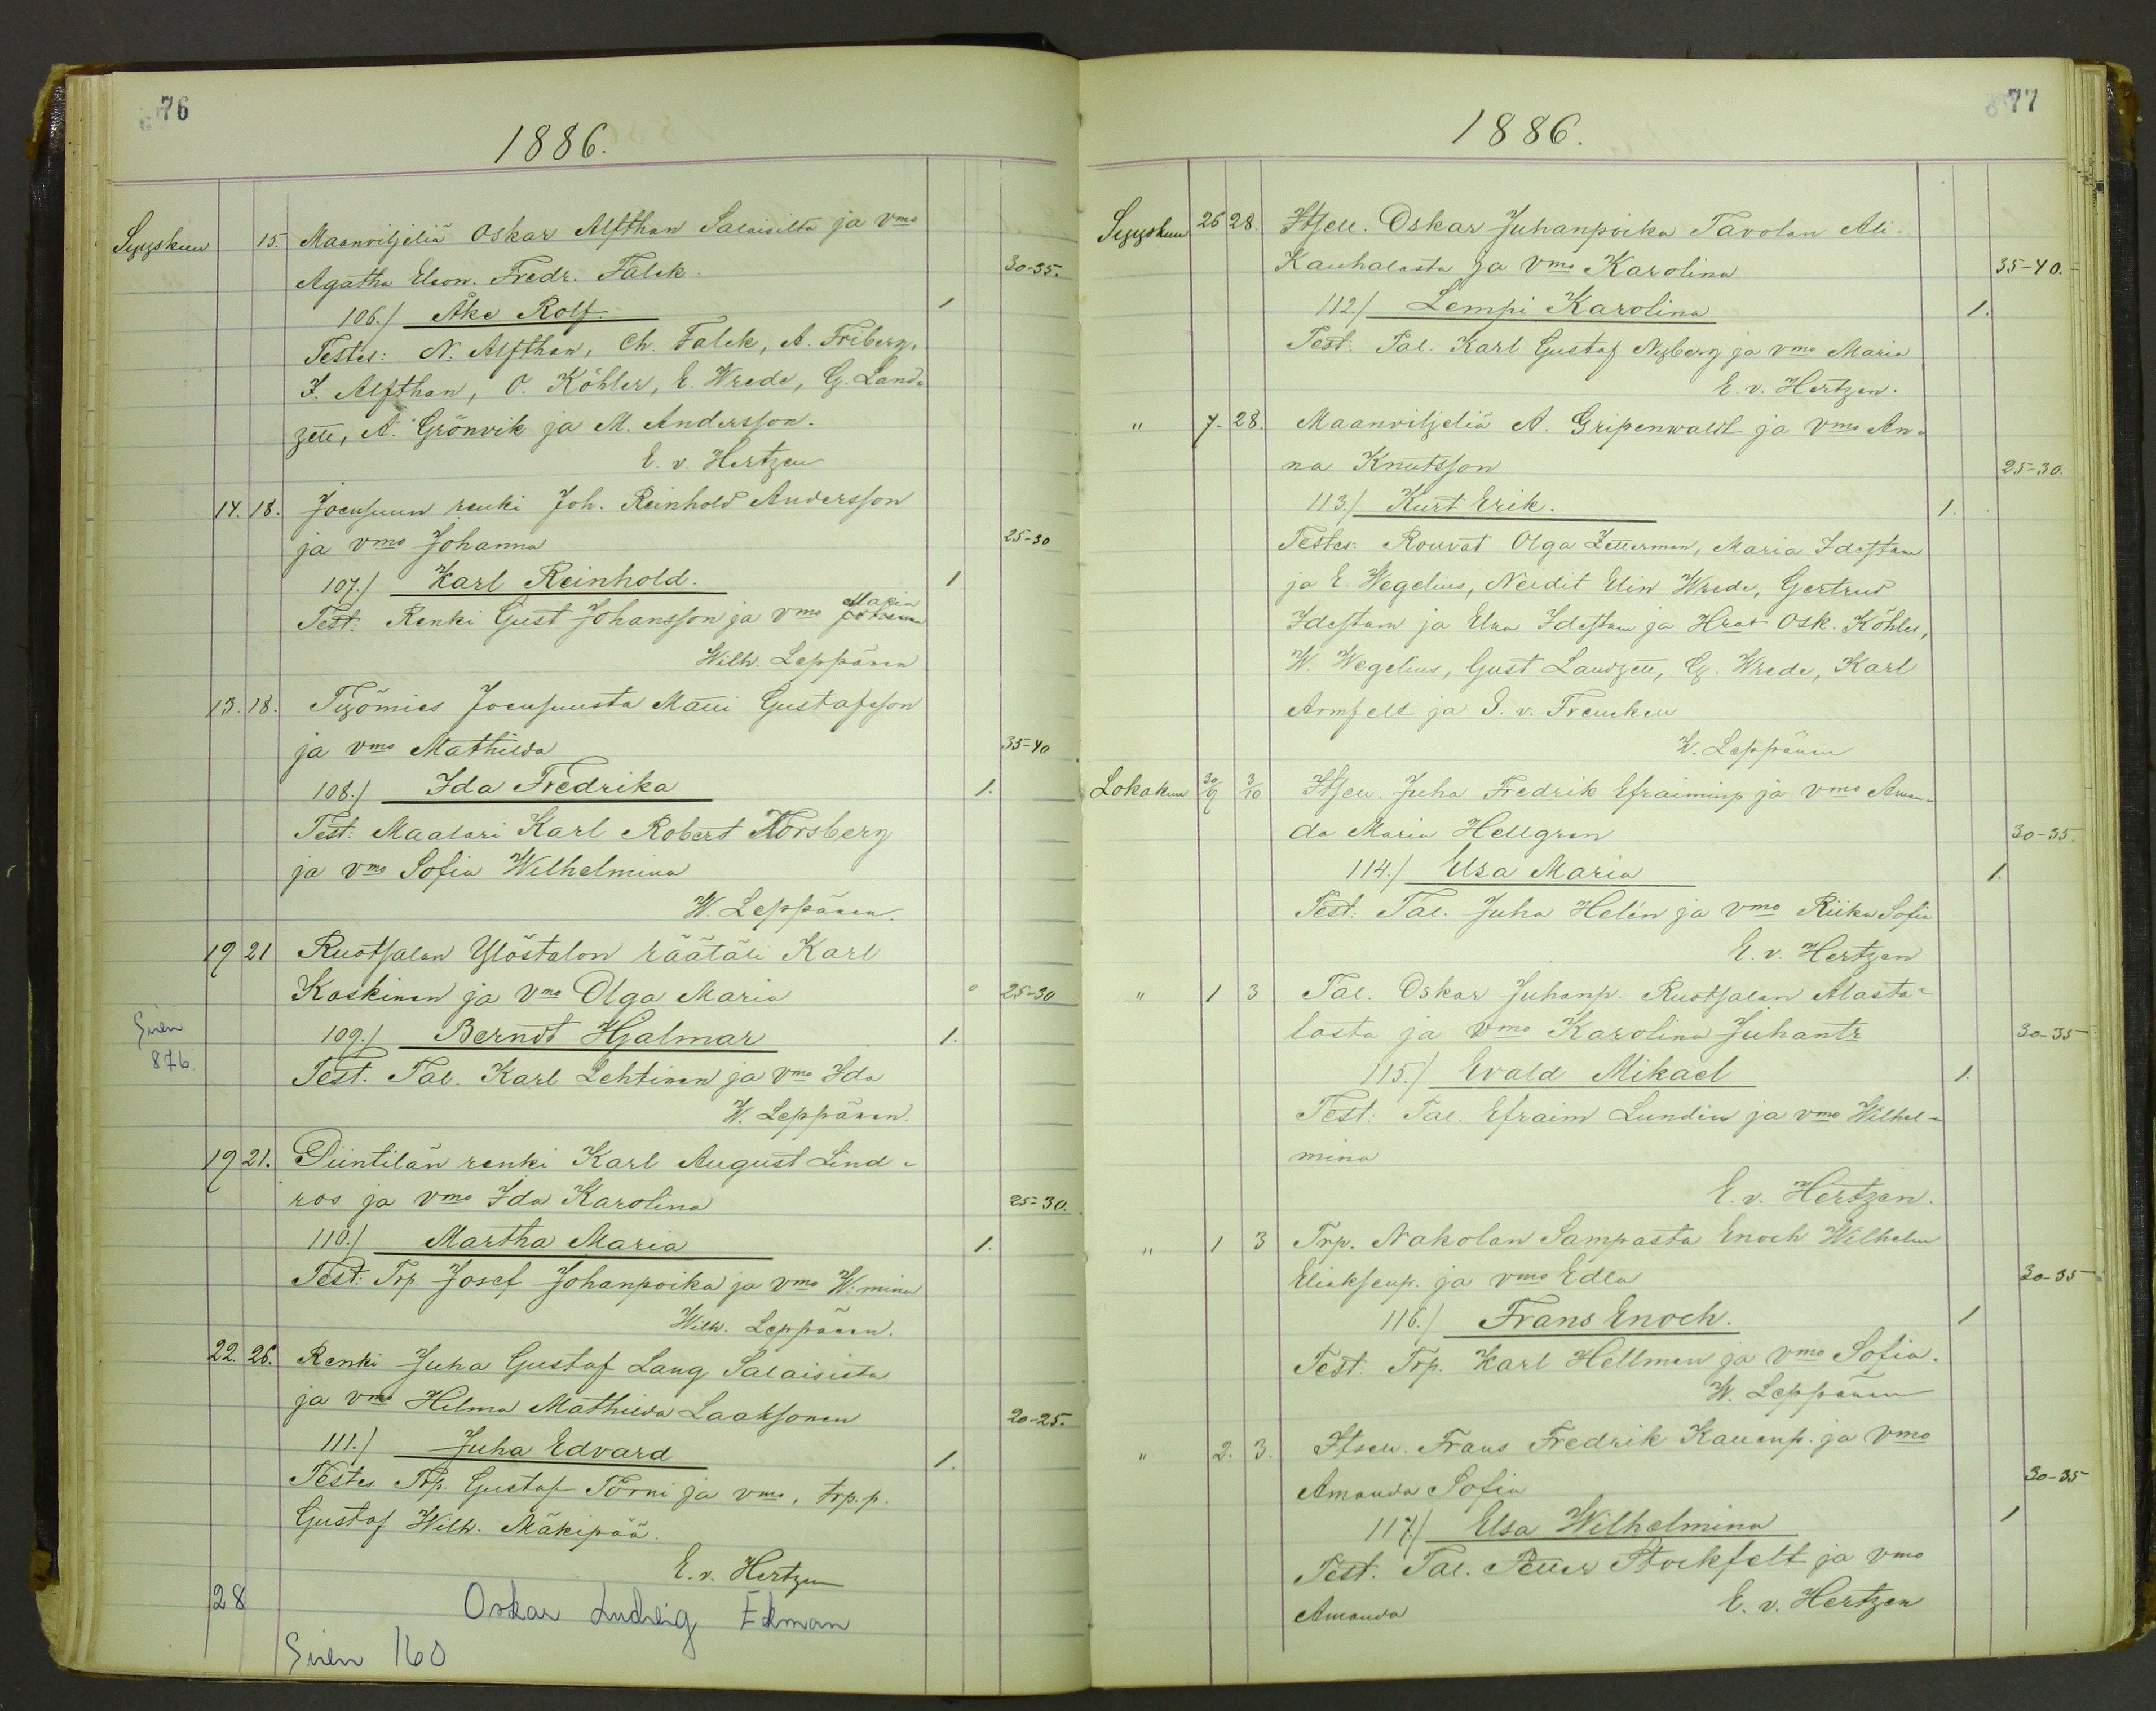 76
1886.
Syyskuu 15. Maanviljeliä Oskar Alfthan Salaisilta ja vmo
Agatha Eleon. Fredr. Falck. 30-35.
106./ Åke Rolf. 1
Testes: N. Alfthan, Ch. Falck, A. Friberg,
I. Alfthan, O. Köhler, E. Wrede, G. Land-
zett, A. Grönvik ja M. Andersson.
E. v. Hertzen
14. 18. Joensuun renki Joh. Reinhold Andersson
ja vmo Johanna 25-30
107./ Karl Reinhold. 1
Test: Renki Gust Johansson ja vmo Maria
Wilh. Leppänen
13. 18. Työmies Joensuusta Matti Gustafsson
ja vmo Mathilda 35-40
108./ Ida Fredrika 1.
Test: Maalari Karl Robert Forsberg
ja vmo Sofia Wilhelmina
W. Leppänen.
19 21 Ruotsalan Ylöstalon räätäli Karl
Koskinen ja vmo Olga Maria 25-30
Siren
876.
109./ Berndt Hjalmar 1.
Test. Tal. Karl Lehtinen ja vmo Ida
W. Leppänen.
19 21. Piintilän renki Karl August Lind-
ros ja vmo Ida Karolina 25-30.
110./ Martha Maria 1.
Test: Trp. Josef Johanpoika ja vmo W:mina
Wilh. Leppänen.
22. 26. Renki Juha Gustaf Lang Salaisista
ja vmo Hilma Mathilda Laaksonen 20-25.
111./ Juha Edvard 1.
Testes Trp. Gustaf Törni ja vmo, trp.p.
Gustaf Wilh. Mäkipää.
E. v. Hertzen
28 Oskar Ludvig Ekman
Siren 160
77
1886.
Syyskuu 26 28. Itsell. Oskar Juhanpoika Tavolan Ali-
Kauhalasta ja vmo Karolina 35-40.
112./ Lempi Karolina 1.
Test: Tal. Karl Gustaf Nyberg ja vmo Maria
E. v. Hertzen.
" 7. 28. Maanviljeliä A. Gripenwaldt ja vmo An-
na Knutsson 25-30.
113./ Kurt Erik. 1.
Testes: Rouvat Olga Zetterman, Maria Idestam
ja E. Wegelius, Neidit Elin Wrede, Gertrud
Idestam ja Elsa Idestam ja Hrat Osk. Köhler,
W. Wegelius, Gust Landzett, G. Wrede, Karl
Armfelt ja S. v. Frenckell
W. Leppänen
Lokakuu 30/9 3/10 Itsell. Juha Fredrik Efraiminp ja vmo Aman-
da Maria Hellgren 30-35.
114./ Elsa Maria 1.
Test: Tal. Juha Helén ja vmo Riika Sofia
E. v. Hertzen
" 1 3 Tal. Oskar Juhanp. Ruotsalan Alasta-
losta ja vmo Karolina Juhantr 30-35
115./ Evald Mikael 1.
Test: Tal. Efraim Lundin ja vmo Wilhel-
mina
E. v. Hertzen.
" 1 3 Trp. Nakolan Sampasta Enoch Wilhelm
Elieksenp. ja vmo Edla 30-35
116./ Frans Enoch. 1
Test. Trp. Karl Hellman ja vmo Sofia.
W. Leppänen
" 2. 3. Itsell. Frans Fredrik Kallenp. ja vmo
Amanda Sofia 30-35
117./ Elsa Wilhelmina 1
Test. Tal. Petter Stockfelt ja vmo
Amanda E. v. Hertzen